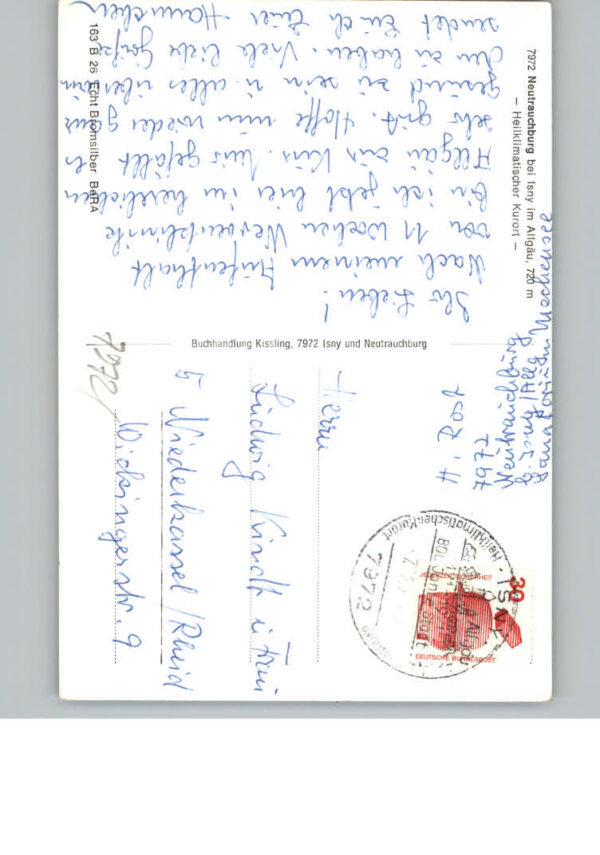 7972 Neutrauchburg bei Isny im Allgäu, 720 m
– Heilklimatischer Kurort –
Ihr Lieben!
Nach meinem Aufenthalt
von 11 Wochen Nervenklinik
bin ich jetzt hier im herrlichen
Allgäu zur Kur. Mir gefällt es
sehr gut. Hoffe nun wieder ganz
gesund zu sein u. alles überwun
den zu haben. Viele liebe Grüße
sendet Euch Euer Hannchen
163 B 26 Echt Bromsilber BeRA
Buchhandlung Kissling, 7972 Isny und Neutrauchburg
H. Rost
7972
Neutrauchburg
b. Isny/Allg.
Sanatorium
Herrn
Ludwig Kindt u. Frau
5 Niederkassel/Rheid
Wickingerstr. 9
7972
30
JEDERZEIT SICHERHEIT
DEUTSCHE BUNDESPOST
7972 ISNY
Heilklimatischer Kurort